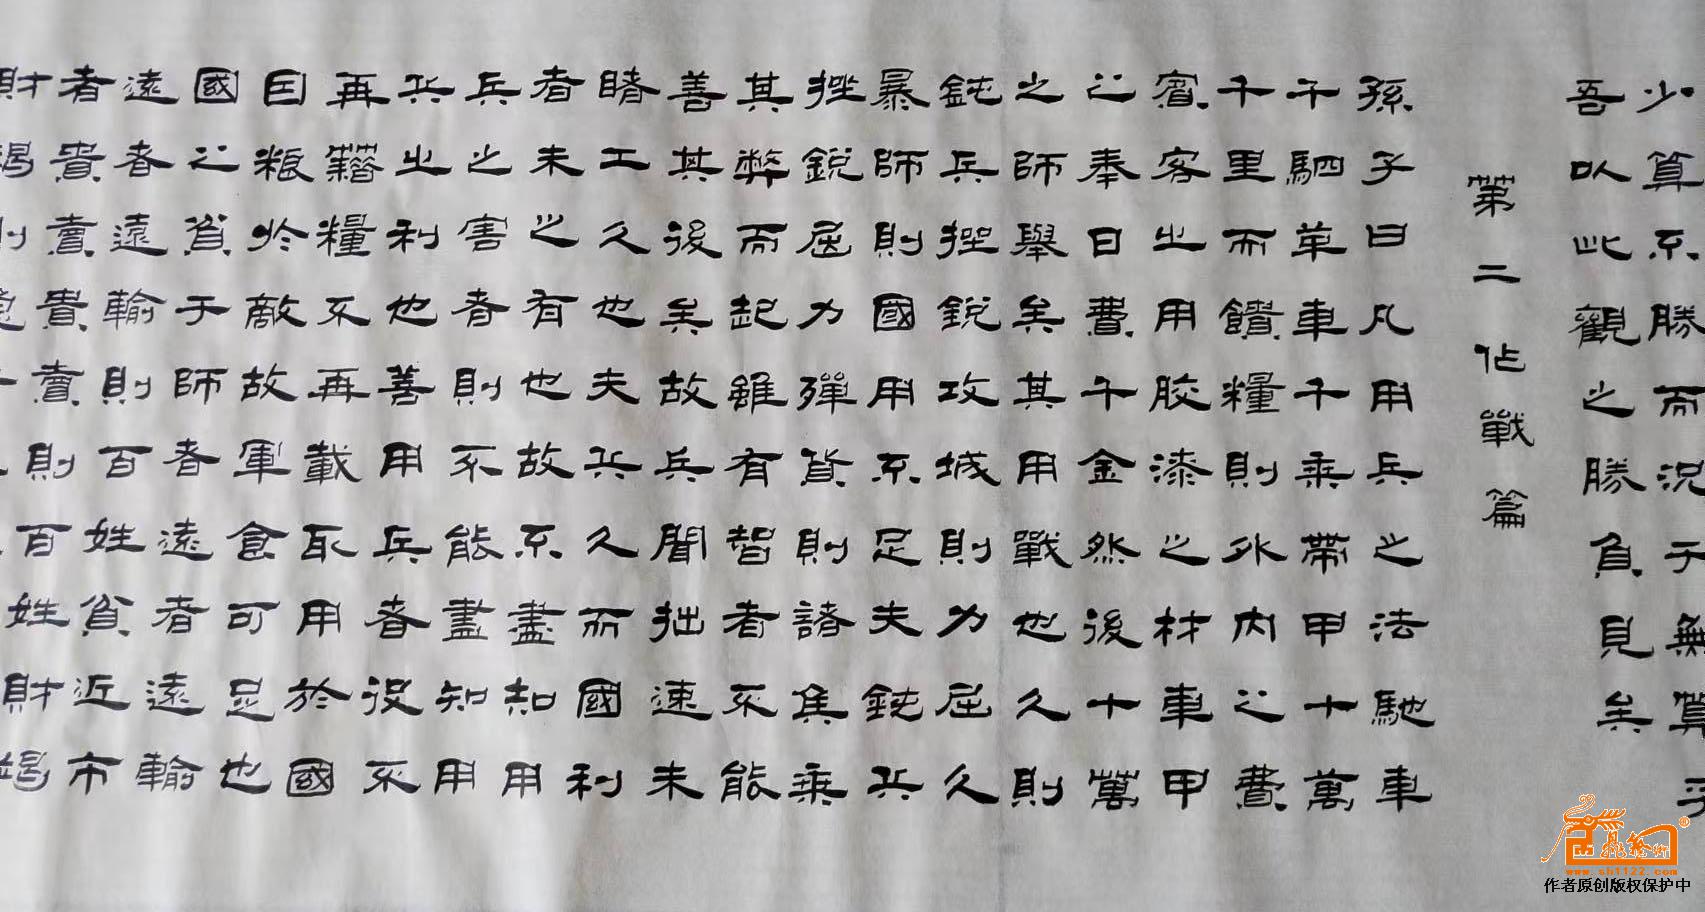 少算不勝而況于無算乎
吾以此觀之勝負見矣
第二作戰篇
孫子曰凡用兵之法馳車
千駟革車千乘帶甲十萬
千里而饋糧則外內之費
賓客之用胶漆之材車甲
之奉日費千金然後十萬
之師舉矣其用戰也久則
鈍兵挫銳攻城則力屈久
暴師則國用不足夫鈍兵
挫銳屈力殫貨則諸侯乘
其弊而起雖有智者不能
善其後矣故兵聞拙速未
睹工久也夫兵久而國利
者未之有也故不盡知用
兵之害者則不能盡知用
兵之利也善用兵者役不
再籍糧不再載取用於國
因粮於敵故軍食可足也
國之貧于師者遠者遠輸
遠者遠輸則百姓貧近市
者貴賣貴賣則百姓財竭
財竭則急
www.sh1122.com
作者原创版权保护中